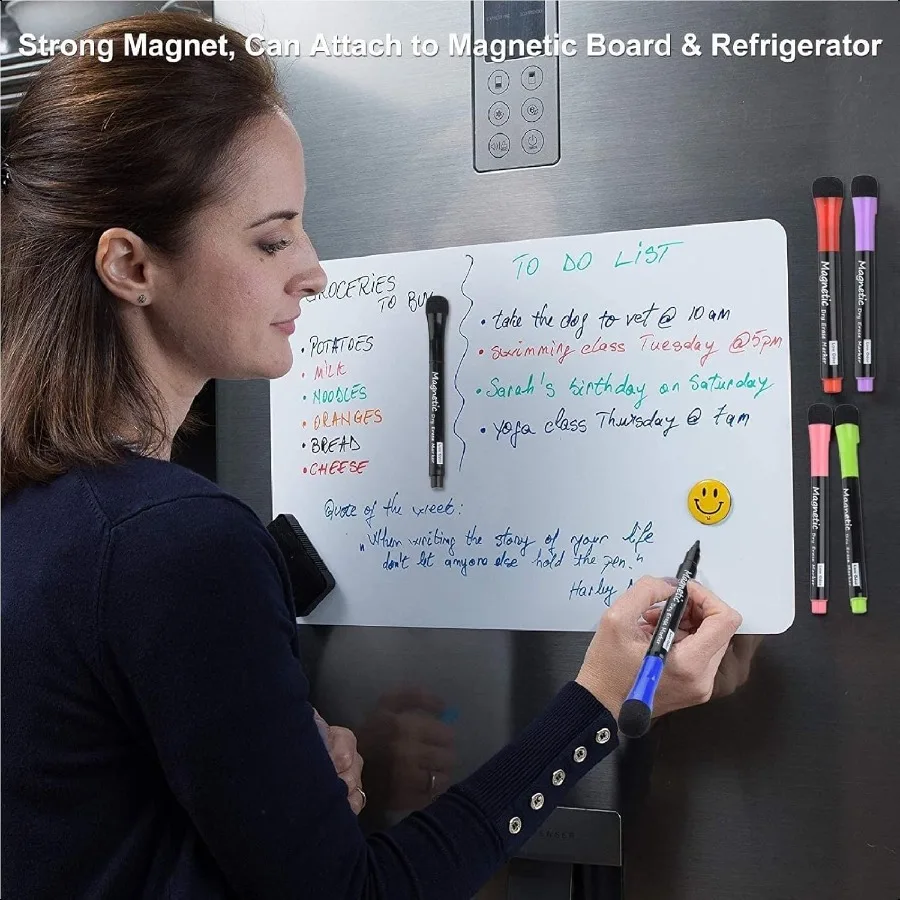 Strong Magnet, Can Attach to Magnetic Board & Refrigerator
GROCERIES
TO BUY
• POTATOES
• MILK
• NOODLES
• ORANGES
• BREAD
• CHEESE
TO DO LIST
• take the dog to vet @ 10 am
• swimming class Tuesday @5pm
• Sarah's birthday on Saturday
• yoga class Thursday @ 7am
Quote of the week:
"When writing the story of your life
don't let anyone else hold the pen."
Harley
Magnetic Dry Erase Marker
Magnetic Dry Erase Marker
Magnetic Dry Erase Marker
Magnetic Dry Erase Marker
Magnetic Dry Erase Marker
Magnetic Dry Erase Marker